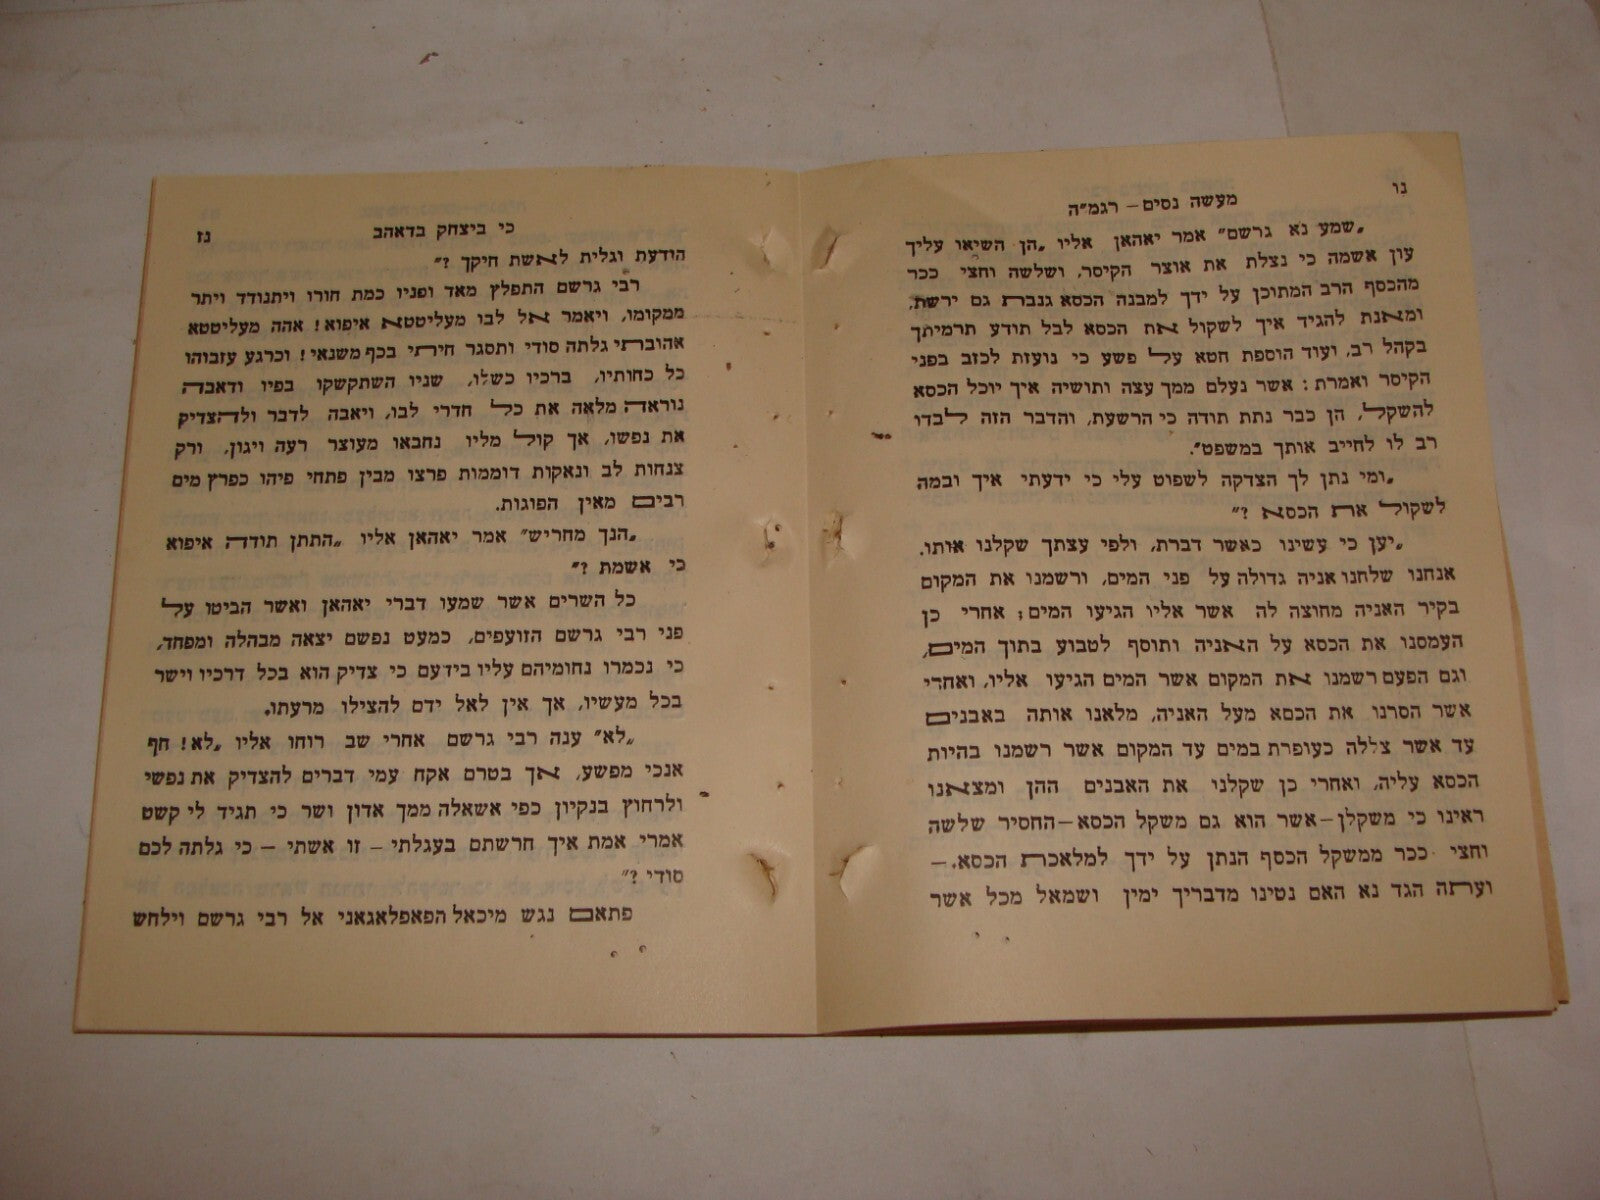 נו
מעשה נסים – רגמ״ה
„שמע נא גרשם״ אמר יאהאן אליו „הן השיאו עליך
עון אשמה כי נצלת את אוצר הקיסר, ושלשה וחצי ככר
מהכסף הרב המתוכן על ידך למבנה הכסא גנבת גם ירשת,
ומאנת להגיד איך לשקול את הכסא לבל תודע תרמיתך
בקהל רב, ועוד הוספת חטא על פשע כי נועזת לכזב בפני
הקיסר ואמרת: אשר נעלם ממך עצה ותושיה איך יוכל הכסא
להשקל, הן כבר נתת תודה כי הרשעת, והדבר הזה לבדו
רב לו לחייב אותך במשפט״.
„ומי נתן לך הצדקה לשפוט עלי כי ידעתי איך ובמה
לשקול את הכסא ?״
„יען כי עשינו כאשר דברת, ולפי עצתך שקלנו אותו.
אנחנו שלחנו אניה גדולה על פני המים, ורשמנו את המקום
בקיר האניה מחוצה לה אשר אליו הגיעו המים; אחרי כן
העמסנו את הכסא על האניה ותוסף לטבוע בתוך המים,
וגם הפעם רשמנו את המקום אשר המים הגיעו אליו, ואחרי
אשר הסרנו את הכסא מעל האניה, מלאנו אותה באבנים
עד אשר צללה כעופרת במים עד המקום אשר רשמנו בהיות
הכסא עליה, ואחרי כן שקלנו את האבנים ההן ומצאנו
ראינו כי משקלן – אשר הוא גם משקל הכסא – החסיר שלשה
וחצי ככר ממשקל הכסף הנתן על ידך למלאכת הכסא. –
ועתה הגד נא האם נטינו מדבריך ימין ושמאל מכל אשר
כי ביצחק בדאהב
נז
הודעת וגלית לאשת חיקך ?״
רבי גרשם התפלץ מאד ופניו כמת חורו ויתנודד ויתר
ממקומו, ויאמר אל לבו מעליטטא איפוא! אהה מעליטטא
אהובתי גלתה סודי ותסגר חיתי בכף משנאי! וכרגע עזבוהו
כל כחותיו, ברכיו כשלו, שניו השתקשקו בפיו ודאבה
נוראה מלאה את כל חדרי לבו, ויאבה לדבר ולהצדיק
את נפשו, אך קול מליו נחבאו מעוצר רעה ויגון, ורק
צנחות לב ונאקות דוממות פרצו מבין פתחי פיהו כפרץ מים
רבים מאין הפוגות.
„הנך מחריש״ אמר יאהאן אליו „התתן תודה איפוא
כי אשמת ?״
כל השרים אשר שמעו דברי יאהאן ואשר הביטו על
פני רבי גרשם הזועפים, כמעט נפשם יצאה מבהלה ומפחד,
כי נכמרו נחומיהם עליו בידעם כי צדיק הוא בכל דרכיו וישר
בכל מעשיו, אך אין לאל ידם להצילו מרעתו.
„לא״ ענה רבי גרשם אחרי שב רוחו אליו „לא! חף
אנכי מפשע, אך בטרם אקח עמי דברים להצדיק את נפשי
ולרחוץ בנקיון כפי אשאלה ממך אדון ושר כי תגיד לי קשט
אמרי אמת איך חרשתם בעגלתי – זו אשתי – כי גלתה לכם
סודי ?״
פתאם נגש מיכאל הפאפלאגאני אל רבי גרשם וילחש